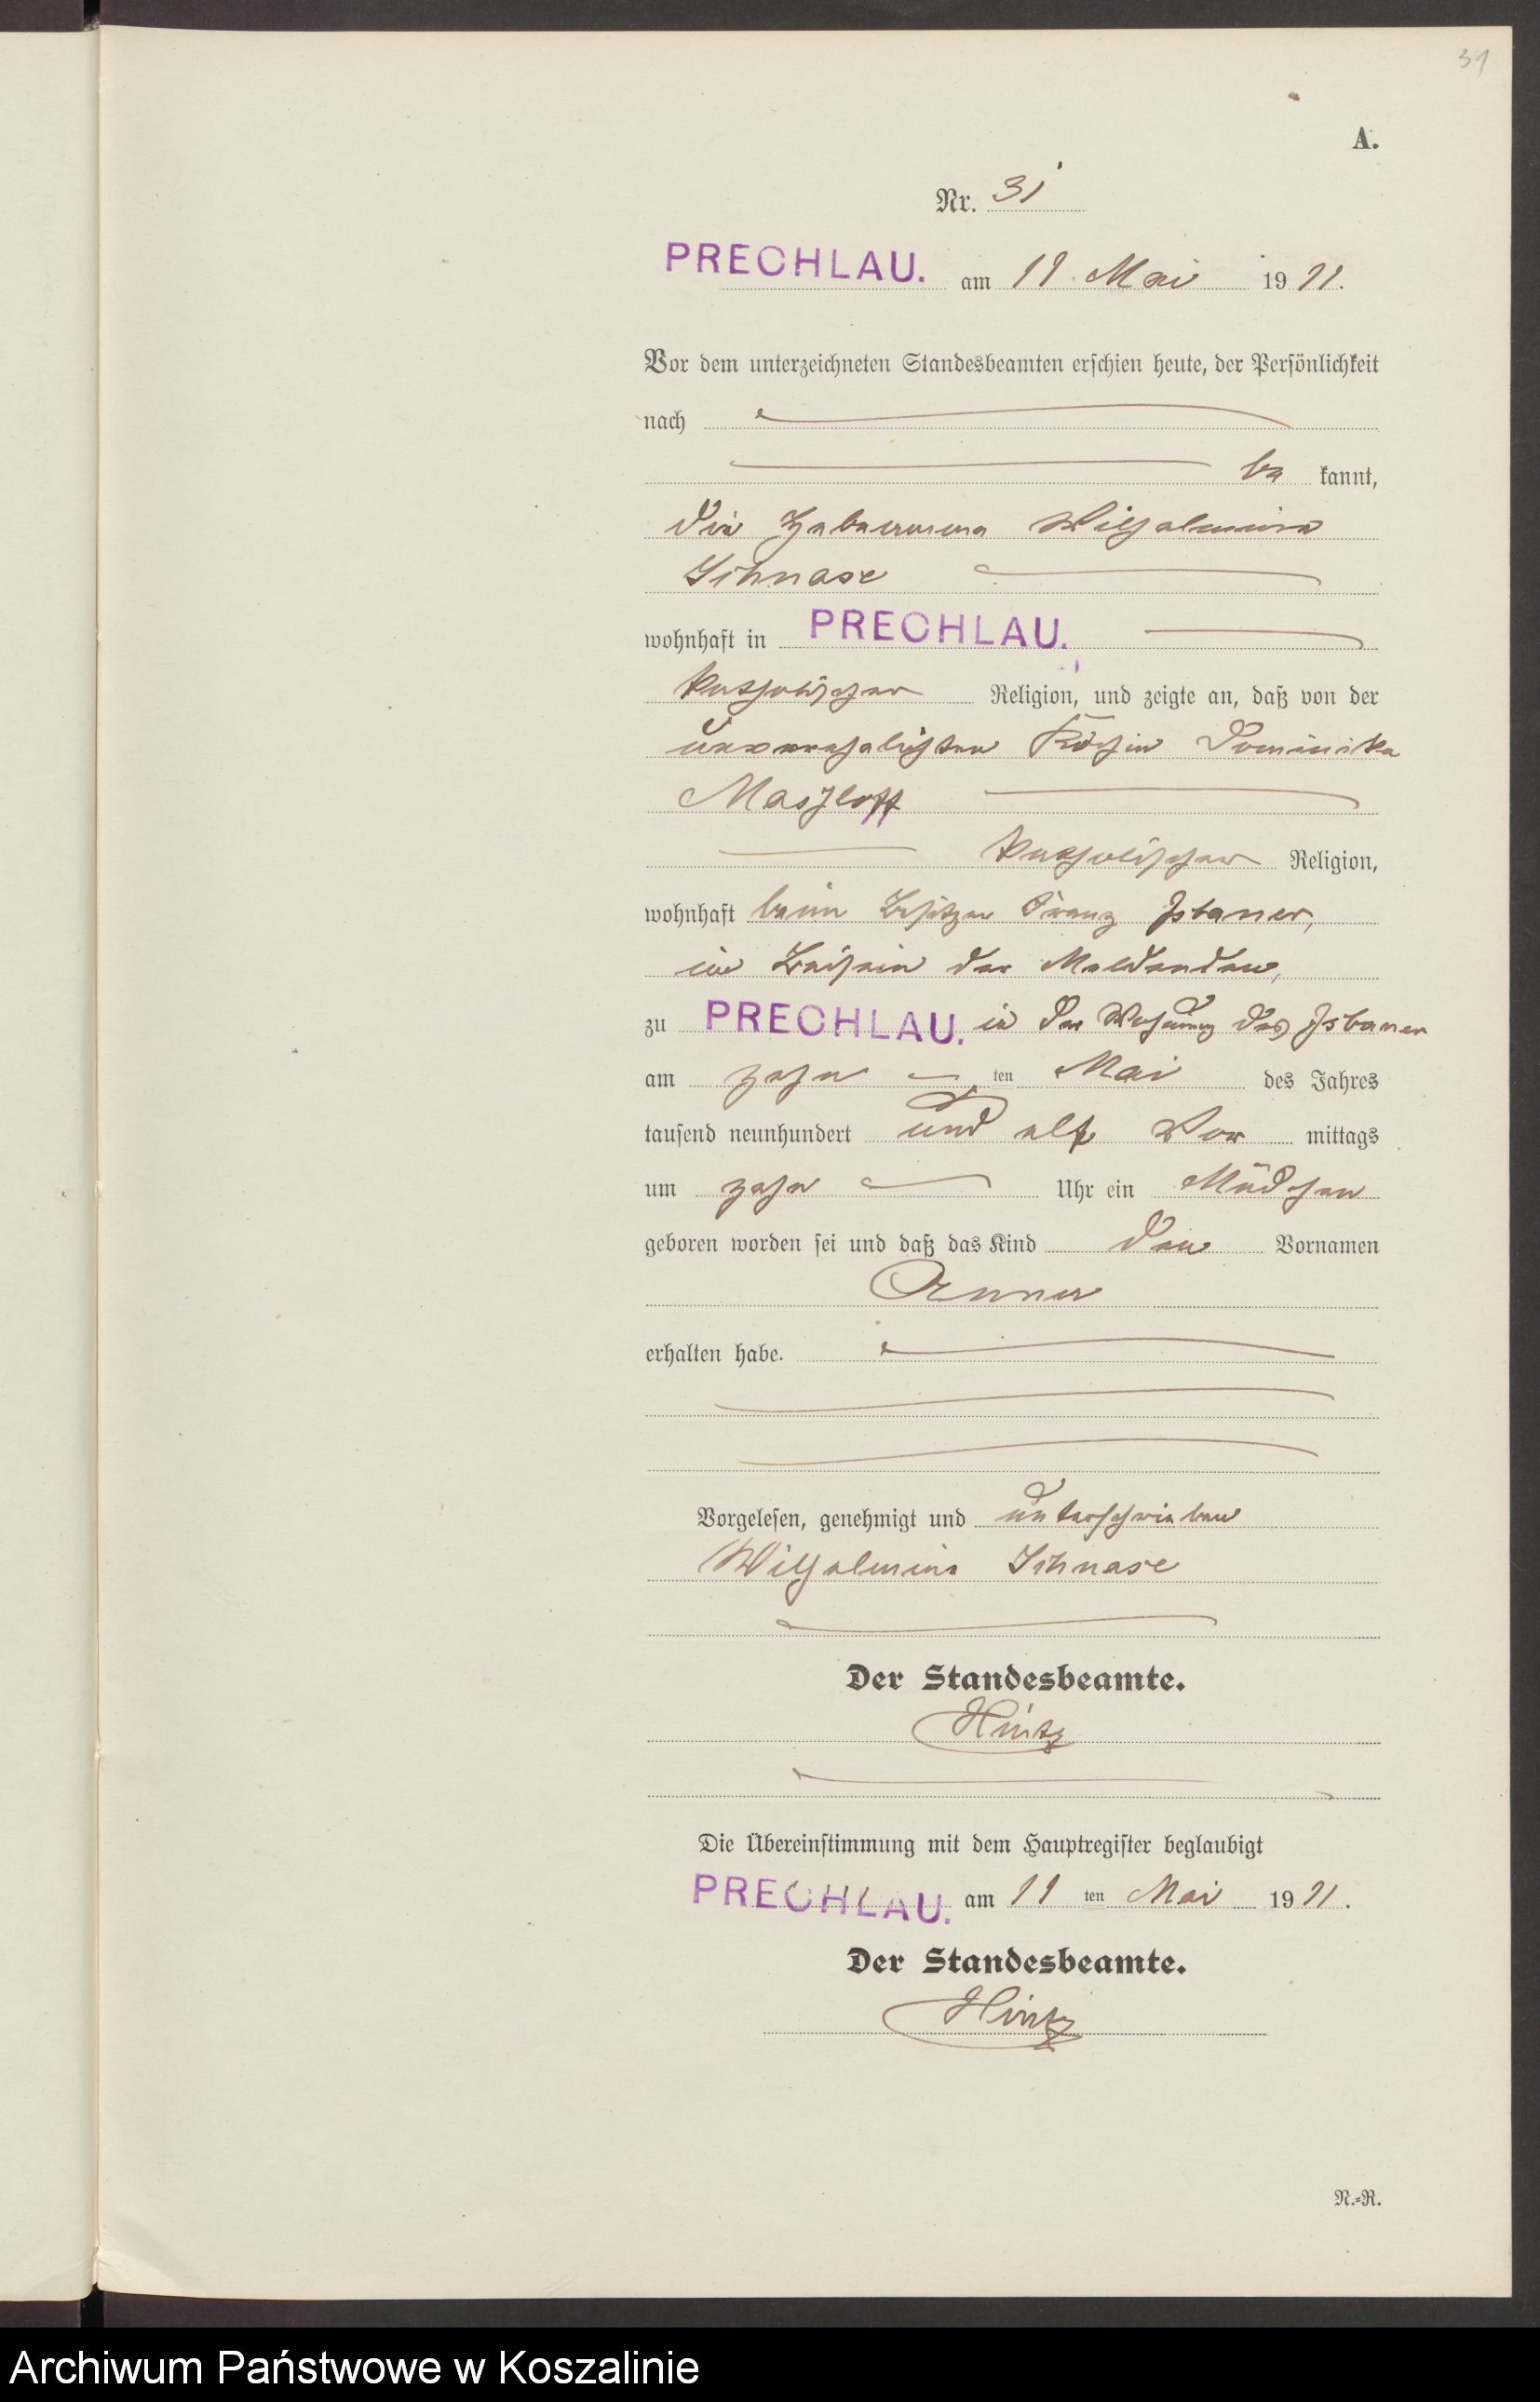 31
A.
Nr. 31
PRECHLAU. am 11. Mai 1911.
Vor dem unterzeichneten Standesbeamten erschien heute, der Persönlichkeit
nach
be kannt,
die Hebamme Wilhelmine
Schnase
wohnhaft in PRECHLAU.
katholischer Religion, und zeigte an, daß von der
unverehelichten Köchin Dominika
katholischer Religion,
wohnhaft beim Besitzer Franz Isbaner,
im Beisein der Meldenden,
zu PRECHLAU. in der Wohnung des Isbaner
am zehn ten Mai des Jahres
tausend neunhundert und elf Vor mittags
um zehn Uhr ein Mädchen
geboren worden sei und daß das Kind den Vornamen
Anna
erhalten habe.
Vorgelesen, genehmigt und unterschrieben
Wilhelmine Schnase
Der Standesbeamte.
Hintz
Die Übereinstimmung mit dem Hauptregister beglaubigt
PRECHLAU. am 11 ten Mai 1911.
Der Standesbeamte.
Hintz
N.=R.
Archiwum Państwowe w Koszalinie